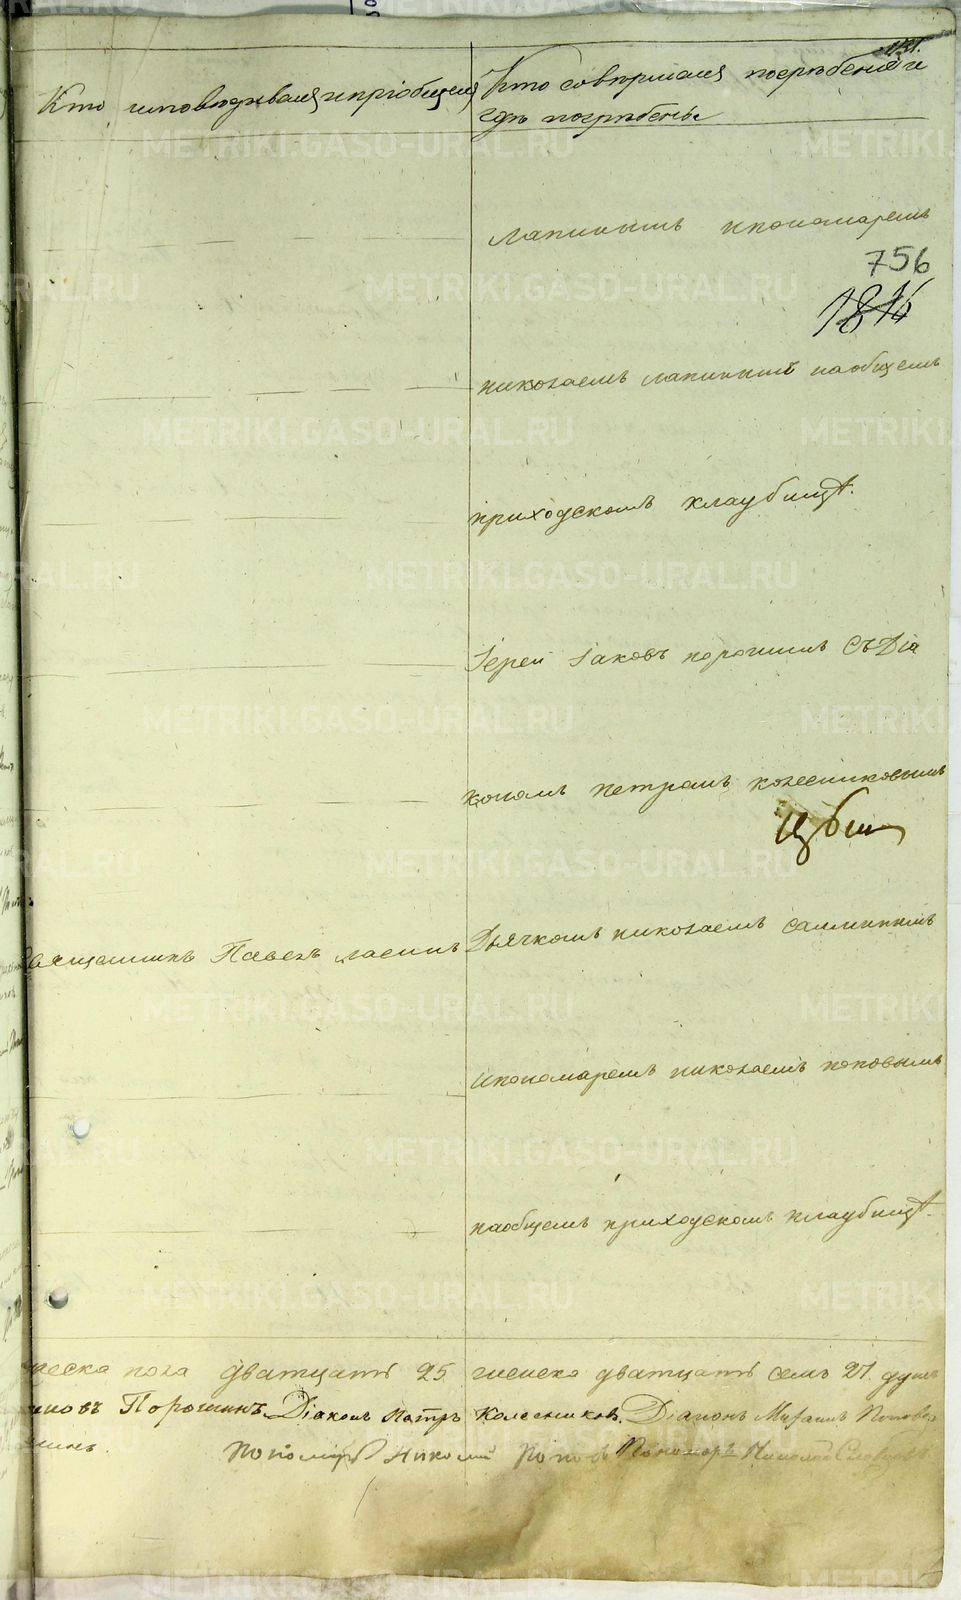 Кто исповѣдывалъ и пріобщалъ
Кто совершалъ погребеніе и
гдѣ погребены
Лапинымъ и пономаремъ
756
николаемъ лапинымъ на общемъ
приходскомъ кладбищѣ.
Іерей Іаковъ порошинъ съ Діа
кономъ петромъ колесниковымъ
Священникъ Павелъ
Дьячкомъ николаемъ
и пономаремъ николаемъ поповымъ
на общемъ приходскомъ кладбищѣ.
пола дватцать 25 женска дватцать семь 27. душъ
Порошинъ Діаконъ Петръ Колесниковъ. Діаконъ Михаилъ Поповъ
Пономарь Николай Поповъ Пономарь Николай
METRIKI.GASO-URAL.RU